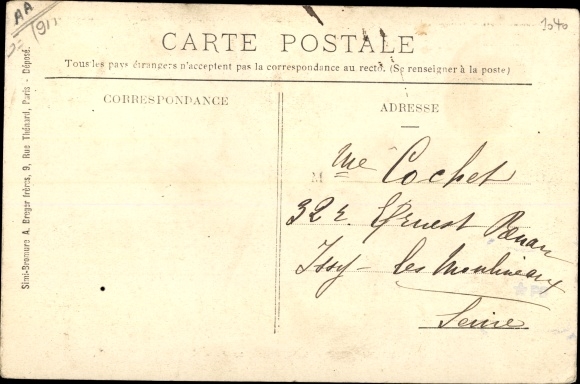 AA
1911
1040
CARTE POSTALE
Tous les pays étrangers n'acceptent pas la correspondance au recto. (Se renseigner à la poste)
CORRESPONDANCE
ADRESSE
Mme Cochet
32 r. Ernest Renan
Issy - les Moulineaux
Seine
Simi-Bromure A. Breger frères, 9, Rue Thénard, Paris - Déposé.